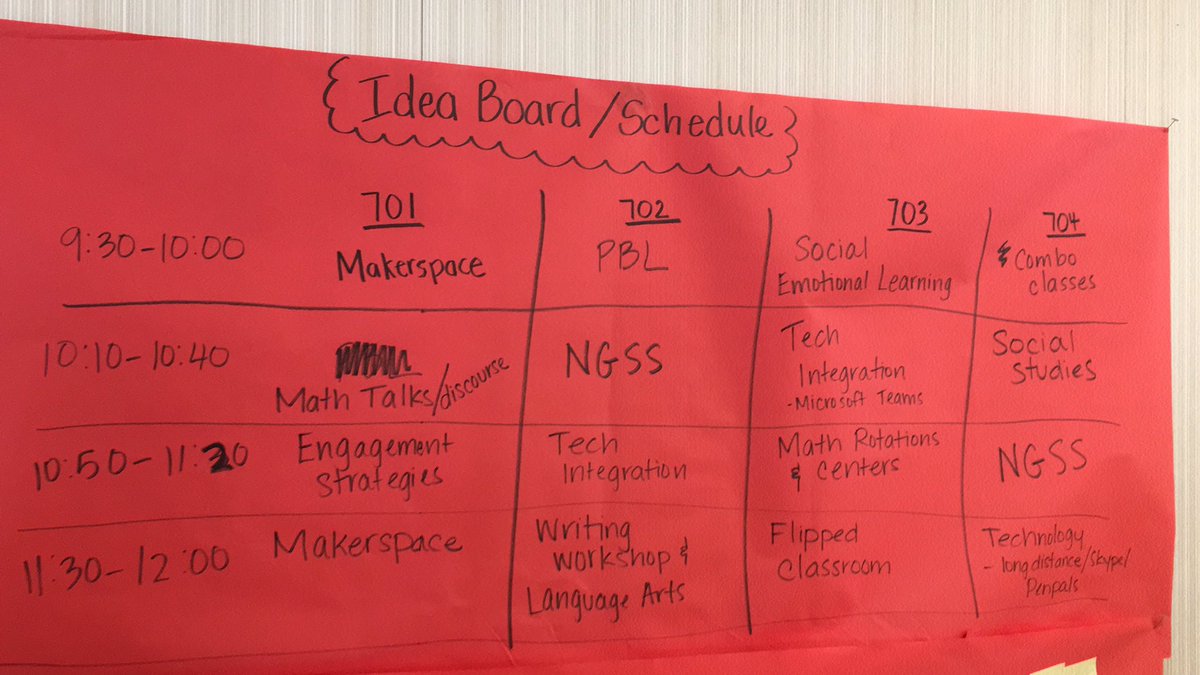 Idea Board/Schedule
701 702 703 704
9:30-10:00 Makerspace PBL Social & Combo
Emotional Learning classes
10:10-10:40 NGSS Tech Social
Math Talks/discourse Integration Studies
-Microsoft Teams
10:50-11:20 Engagement Tech Math Rotations NGSS
Strategies Integration & Centers
11:30-12:00 Makerspace Writing Flipped Technology
workshop & Classroom - long distance/Skype/
Language Arts Penpals